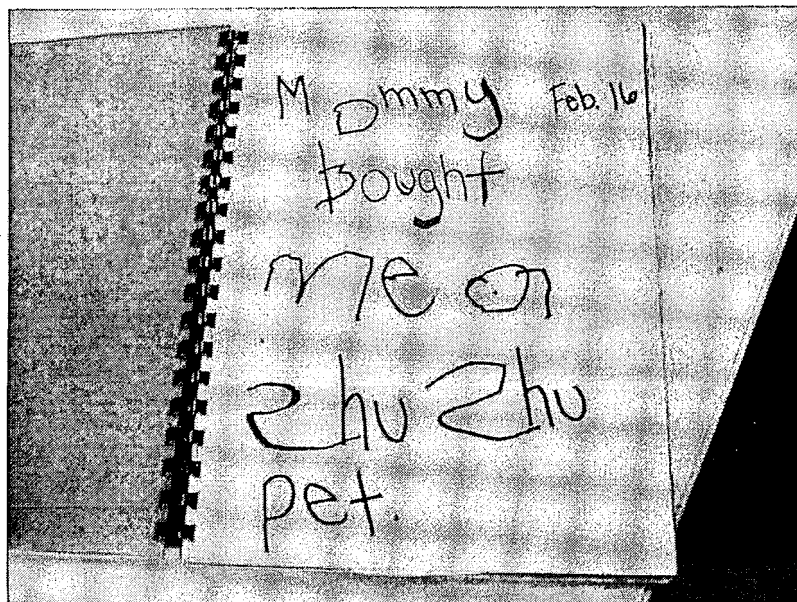 Mommy Feb. 16
bought
me a
Zhu Zhu
pet.